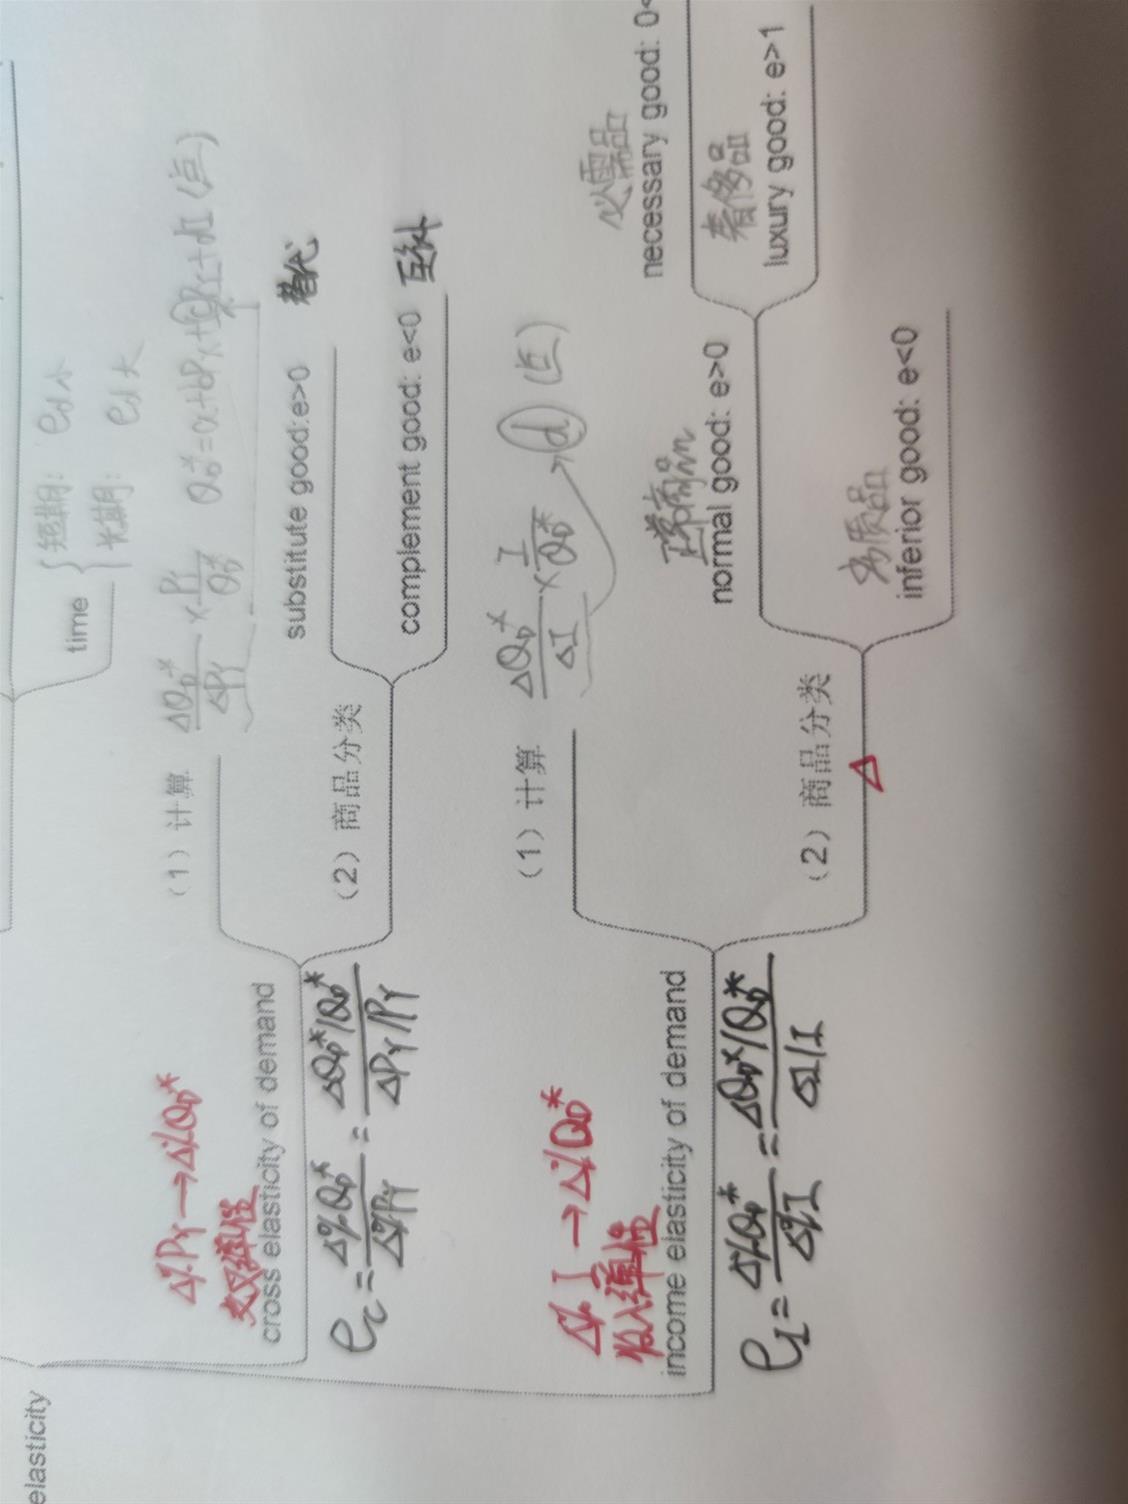 elasticity
time
短期： ed小
长期： ed大
Δ%Py→Δ%QD*
交叉弹性
cross elasticity of demand
ec = Δ%QD*/Δ%Py = ΔQD*/QD* / ΔPy/Py
（1）计算
ΔQD*/ΔPy × Py/QD* QD*=a+bPx+cPr+dI (点)
（2）商品分类
substitute good:e>0 替代
complement good: e<0 互补
Δ% I →Δ%QD*
收入弹性
income elasticity of demand
eI = Δ%QD*/Δ%I = ΔQD*/QD* / ΔI/I
（1）计算
ΔQD*/ΔI × I/QD* d (点)
（2）商品分类
Δ
正常商品
normal good: e>0
必需品
necessary good: 0<
奢侈品
luxury good: e>1
劣质品
inferior good: e<0